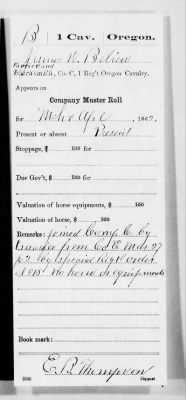 B | 1 Cav. | Oregon.
James W. Belieu
Farrier and
Blacksmith, Co. C, 1 Reg't Oregon Cavalry.
Appears on
Company Muster Roll
for Mch & Apl, 1862.
Present or absent Present
Stoppage, $ 100 for
Due Gov't, $ 100 for
Valuation of horse equipments, $ 100
Valuation of horse, $ 100
Remarks: joined Comp C by
transfer from Co E Mch 27
62 by special Regt order
No horse or equipments
Book mark:
E. B. Thompson
(358) Copyist.